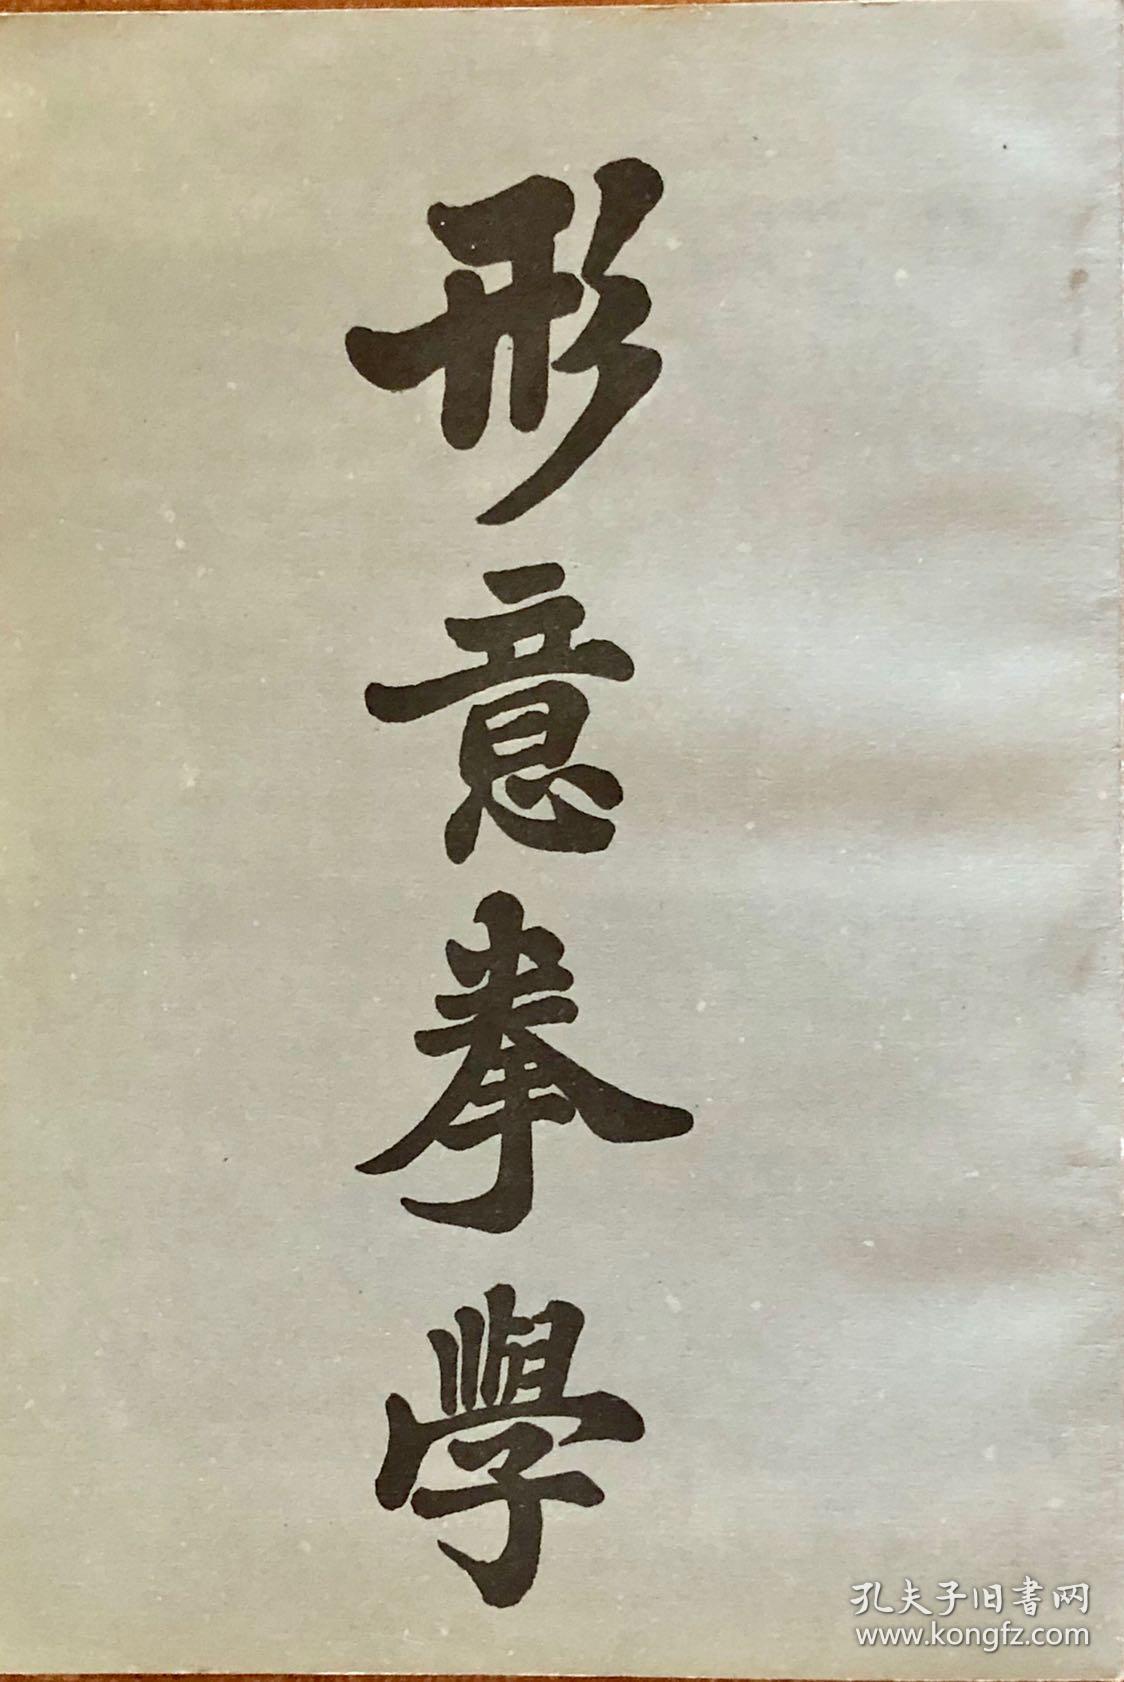 形意拳學
孔夫子旧書网
www.kongfz.com